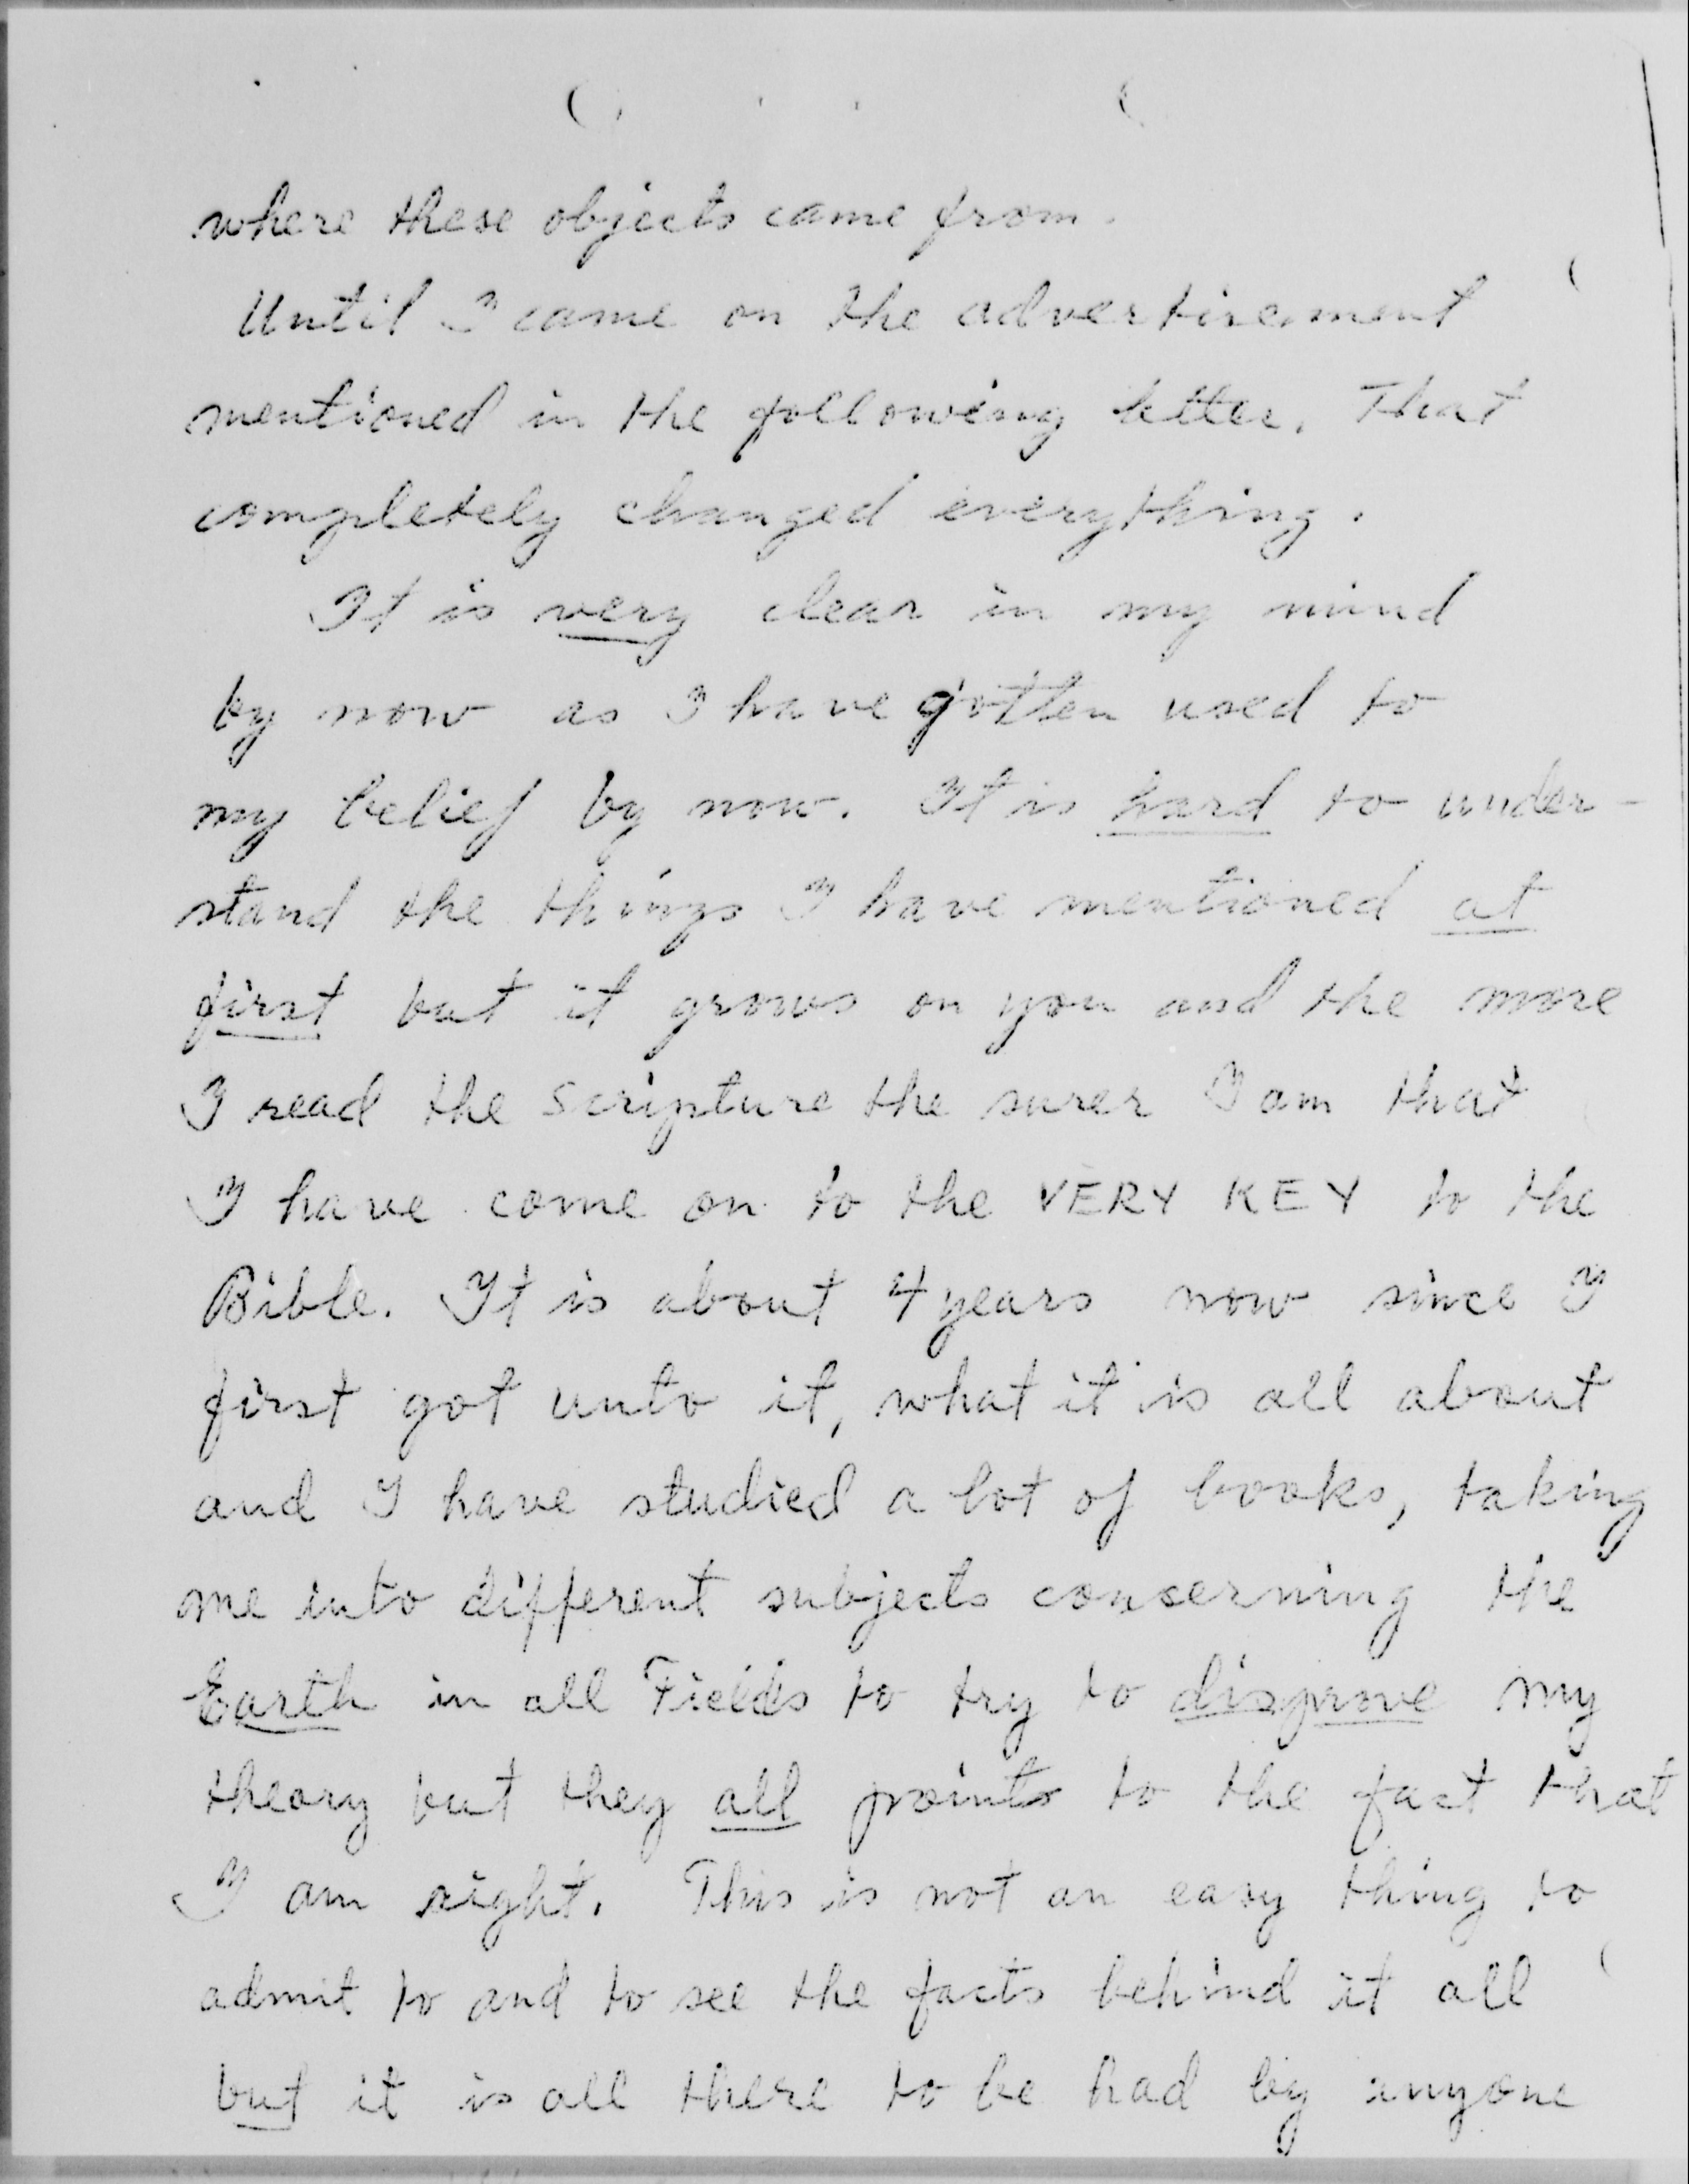 where these objects came from.
Until I came on the advertisement
mentioned in the following letter. That
completely changed everything.
It is very clear in my mind
by now as I have gotten used to
my belief by now. It is hard to under-
stand the things I have mentioned at
first but it grows on you and the more
I read the scripture the surer I am that
I have come on to the VERY KEY to the
Bible. It is about 4 years now since I
first got unto it, what it is all about
and I have studied a lot of books, taking
me into different subjects conserning the
Earth in all Fields to try to disprove my
theory but they all points to the fact that
I am right. This is not an easy thing to
admit to and to see the facts behind it all
but it is all there to be had by anyone